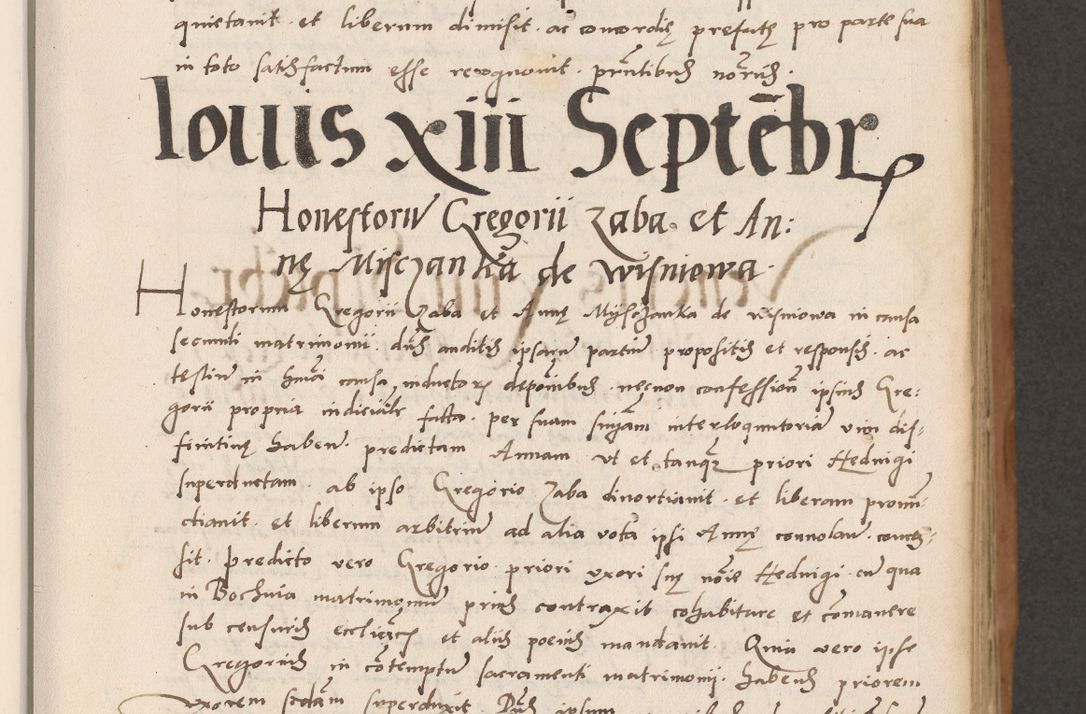 quietavit et liberum dimisit ac concordię prefatę pro parte sua
in toto satisfactum esse recognovit prntibus notariis.
Iouis xiii Septēbr
Honestoru Gregorii Zaba et An:
nę Misczankā de Wisniowa
Honestorum Gregorii Zaba et Annę Mysczanka de Wisniowa in causa
secundi matrimonii dus auditis ipsarum partium propositis et responsis ac
testium in hmōi causa inductorz deponibus necnon confessioni ipsius Gre:
gorii propria indicialr facta per suam sniam interloquutoria vim def-
finitivę habenr predictam Annam ut et tanquam priori Hedvigi
superductam ab ipso Gregorio Zaba divortiavit et liberam pronū
ctiavit et liberum arbitriū ad alia vota ipsi Annę convolanr conces-
sit predicto vero Gregorio priori uxori suę nōie Hedvigi cū qua
in Bochnia matrimoniū prius contraxit cohabitare et cōmanere
sub censuris eccliczs et aliis poenis mandavit Quia vero ipse
Gregorius in cōtemptū sacramenti matrimonii habens priorem
uxorem scdam superduxit ipsum